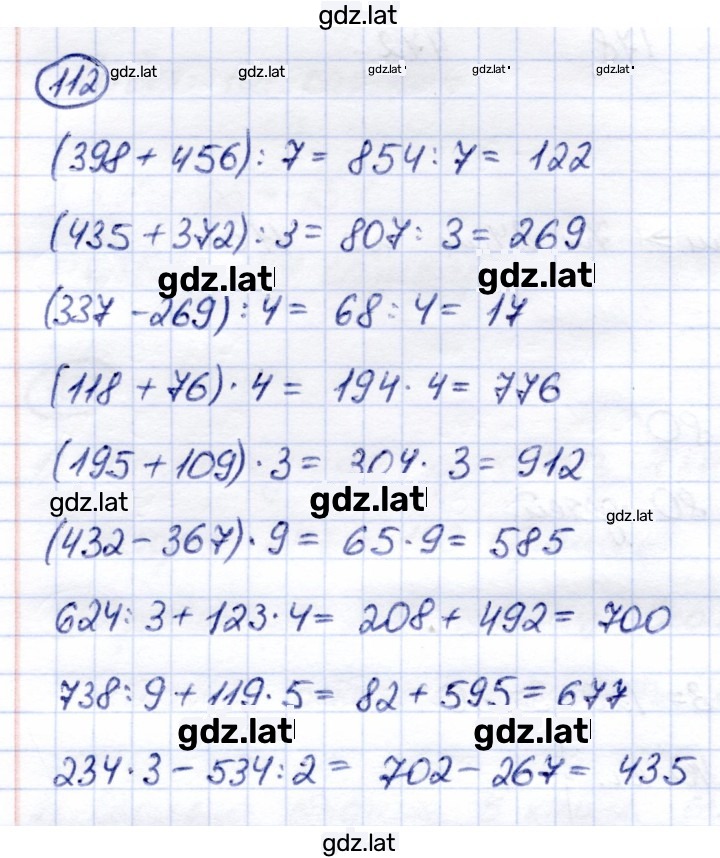 gdz.lat
112 gdz.lat gdz.lat gdz.lat gdz.lat gdz.lat
(398 + 456) : 7 = 854 : 7 = 122
(435 + 372) : 3 = 807 : 3 = 269
gdz.lat gdz.lat
(337 - 269) : 4 = 68 : 4 = 17
(118 + 76) · 4 = 194 · 4 = 776
(195 + 109) · 3 = 304 · 3 = 912
gdz.lat gdz.lat gdz.lat
(432 - 367) · 9 = 65 · 9 = 585
624 : 3 + 123 · 4 = 208 + 492 = 700
738 : 9 + 119 · 5 = 82 + 595 = 677
gdz.lat gdz.lat
234 · 3 - 534 : 2 = 702 - 267 = 435
gdz.lat